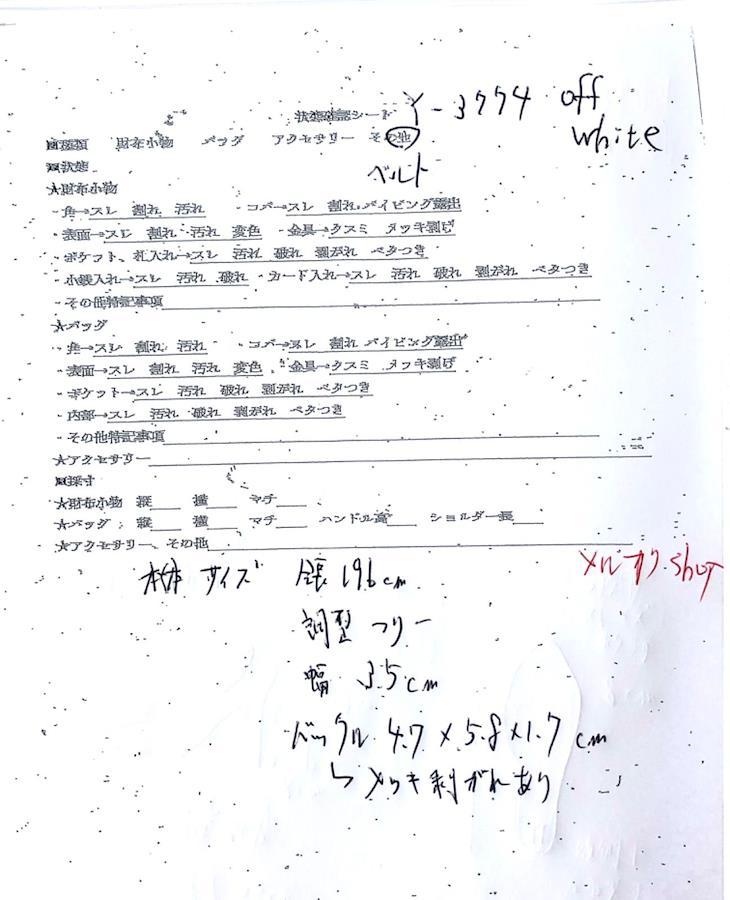 状態確認シート Y-3774 off
white
■種類 財布小物 バッグ アクセサリー その他
ベルト
■状態
★財布小物
・角→スレ 割れ 汚れ ・コバ→スレ 割れ パイピング露出
・表面→スレ 割れ 汚れ 変色 ・金具→クスミ メッキ剥げ
・ポケット、札入れ→スレ 汚れ 破れ 剥がれ ベタつき
・小銭入れ→スレ 汚れ 破れ ・カード入れ→スレ 汚れ 破れ 剥がれ ベタつき
・その他特記事項
★バッグ
・角→スレ 割れ 汚れ ・コバ→スレ 割れ パイピング露出
・表面→スレ 割れ 汚れ 変色 ・金具→クスミ メッキ剥げ
・ポケット→スレ 汚れ 破れ 剥がれ ベタつき
・内部→スレ 汚れ 破れ 剥がれ ベタつき
・その他特記事項
★アクセサリー
■採寸
★財布小物 縦 横 マチ
★バッグ 縦 横 マチ ハンドル高 ショルダー長
★アクセサリー、その他
メルオク shop
本体サイズ 全長 196cm
調整 フリー
幅 3.5cm
バックル 4.7×5.8×1.7cm
↳メッキ剥がれあり